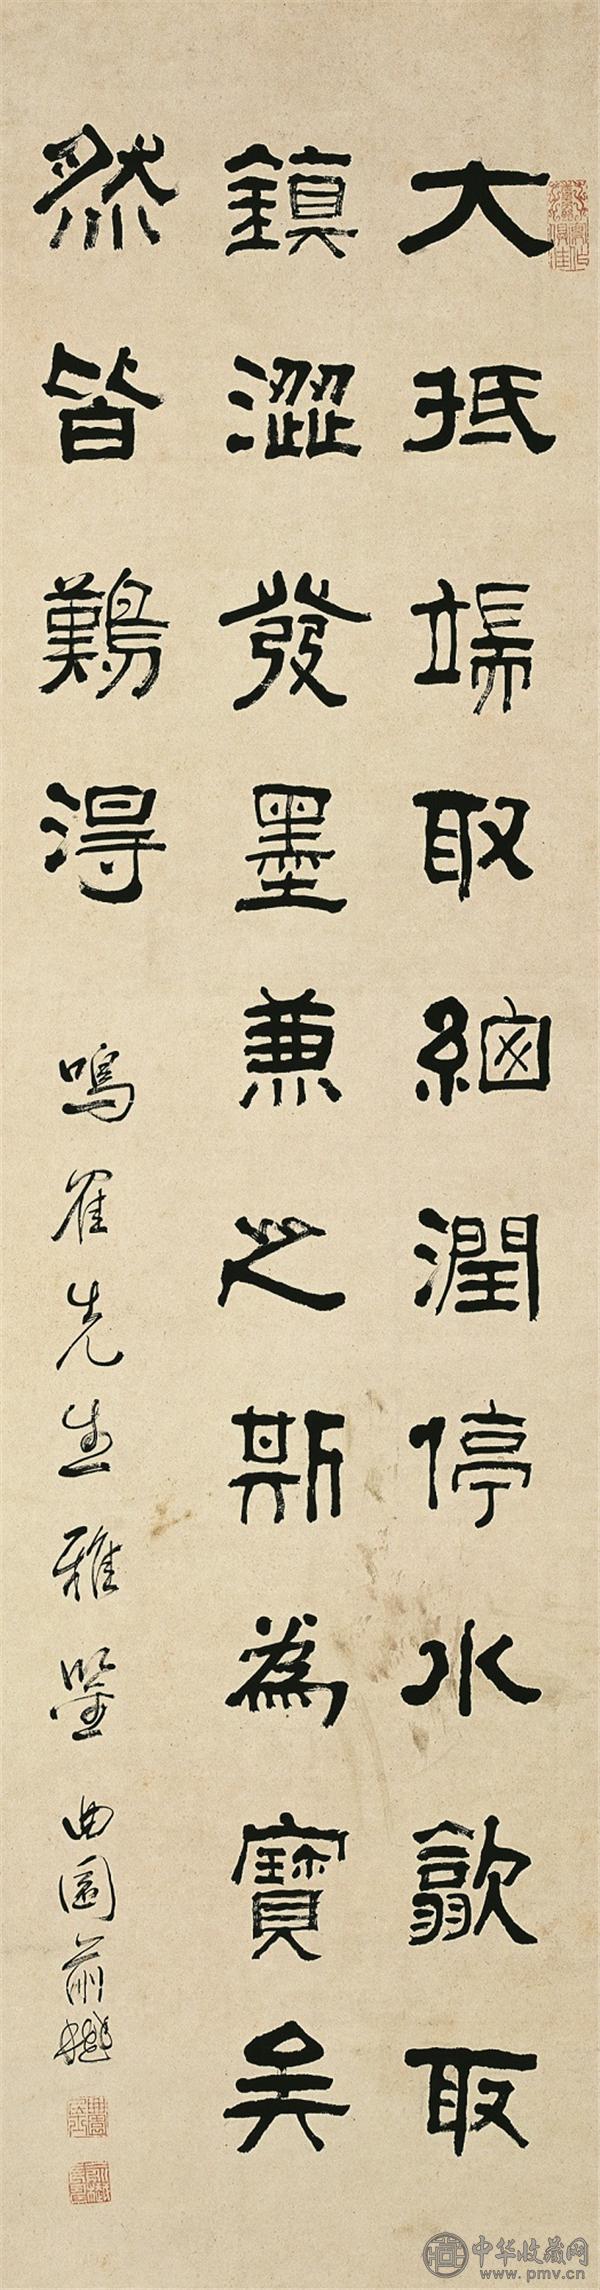 大抵端取細潤停水歙取
鎮澀發墨兼之斯為寶矣
然皆難得
鳴崔先生雅鑒 曲園俞樾
中华收藏网
www.pmv.cn